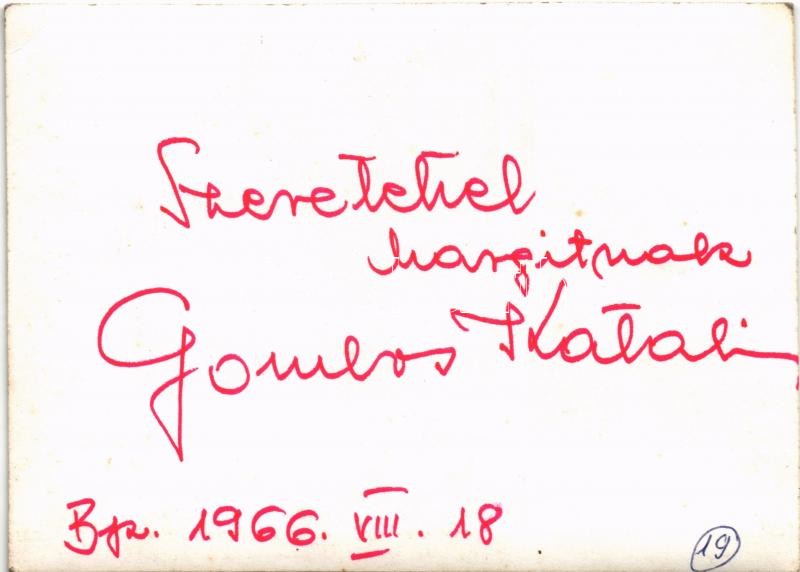 Szeretettel
Margitnak
Gombos Katalin
Bp. 1966. VIII. 18
19